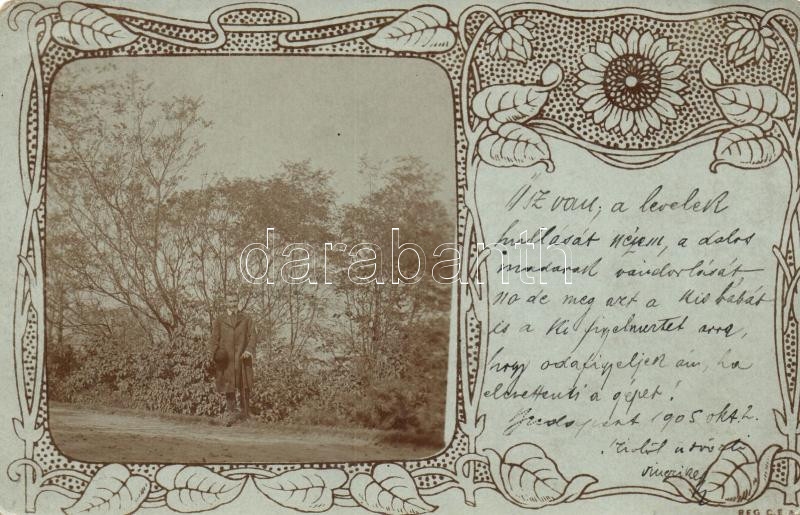 Ősz van; a levelek
hullását nézem, a dalos
madarak vándorlását
no de meg azt a kis babát
is a ki figyelmeztet arra,
hogy odafigyeljek ám, ha
elkattenti a gépet!
Budapest 1905 okt. 2.
üdvözli
darabanth
REG. C.E.A.